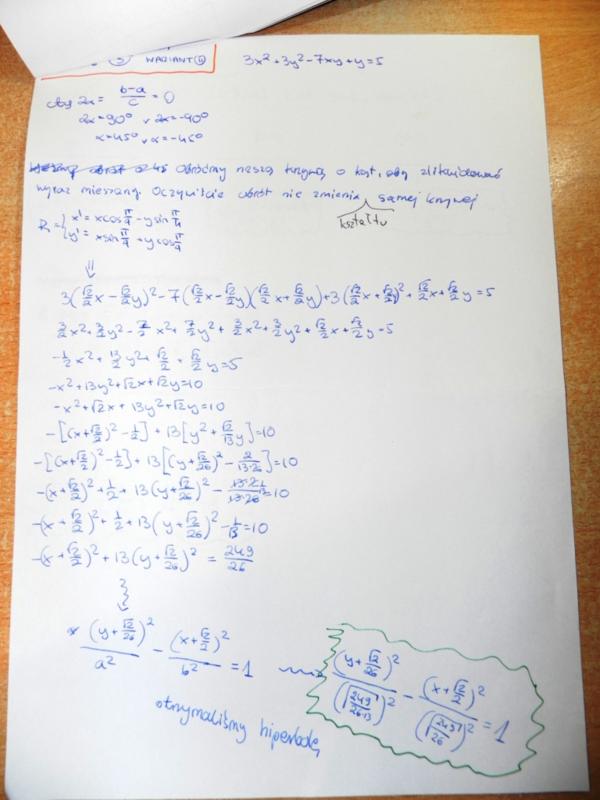 ③ WARIANT ④ 3x² + 3y² - 7xy + y = 5
ctg 2α = (b-a)/c = 0
2α = 90° ∨ 2α = -90°
α = 45° ∨ α = -45°
Obróćmy naszą krzywą o kąt, aby zlikwidować
wyraz mieszany. Oczywiście obrót nie zmienia kształtu samej krzywej
R: { x' = x cos π/4 - y sin π/4
y' = x sin π/4 + y cos π/4
⇓
3(√2/2 x - √2/2 y)² - 7(√2/2 x - √2/2 y)(√2/2 x + √2/2 y) + 3(√2/2 x + √2/2 y)² + √2/2 x + √2/2 y = 5
3/2 x² + 3/2 y² - 7/2 x² + 7/2 y² + 3/2 x² + 3/2 y² + √2/2 x + √2/2 y = 5
-1/2 x² + 13/2 y² + √2/2 + √2/2 y = 5
-x² + 13y² + √2x + √2y = 10
-x² + √2x + 13y² + √2y = 10
-[(x + √2/2)² - 1/2] + 13[y² + √2/13 y] = 10
-[(x + √2/2)² - 1/2] + 13[(y + √2/26)² - 2/(13·26)] = 10
-(x + √2/2)² + 1/2 + 13(y + √2/26)² - (13·2)/(13·26) = 10
-(x + √2/2)² + 1/2 + 13(y + √2/26)² - 1/13 = 10
-(x + √2/2)² + 13(y + √2/26)² = 249/26
(y + √2/26)²/a² - (x + √2/2)²/b² = 1 ⇝ (y + √2/26)²/(√(249/(26·13)))² - (x + √2/2)²/(√(249/26))² = 1
otrzymaliśmy hiperbolę